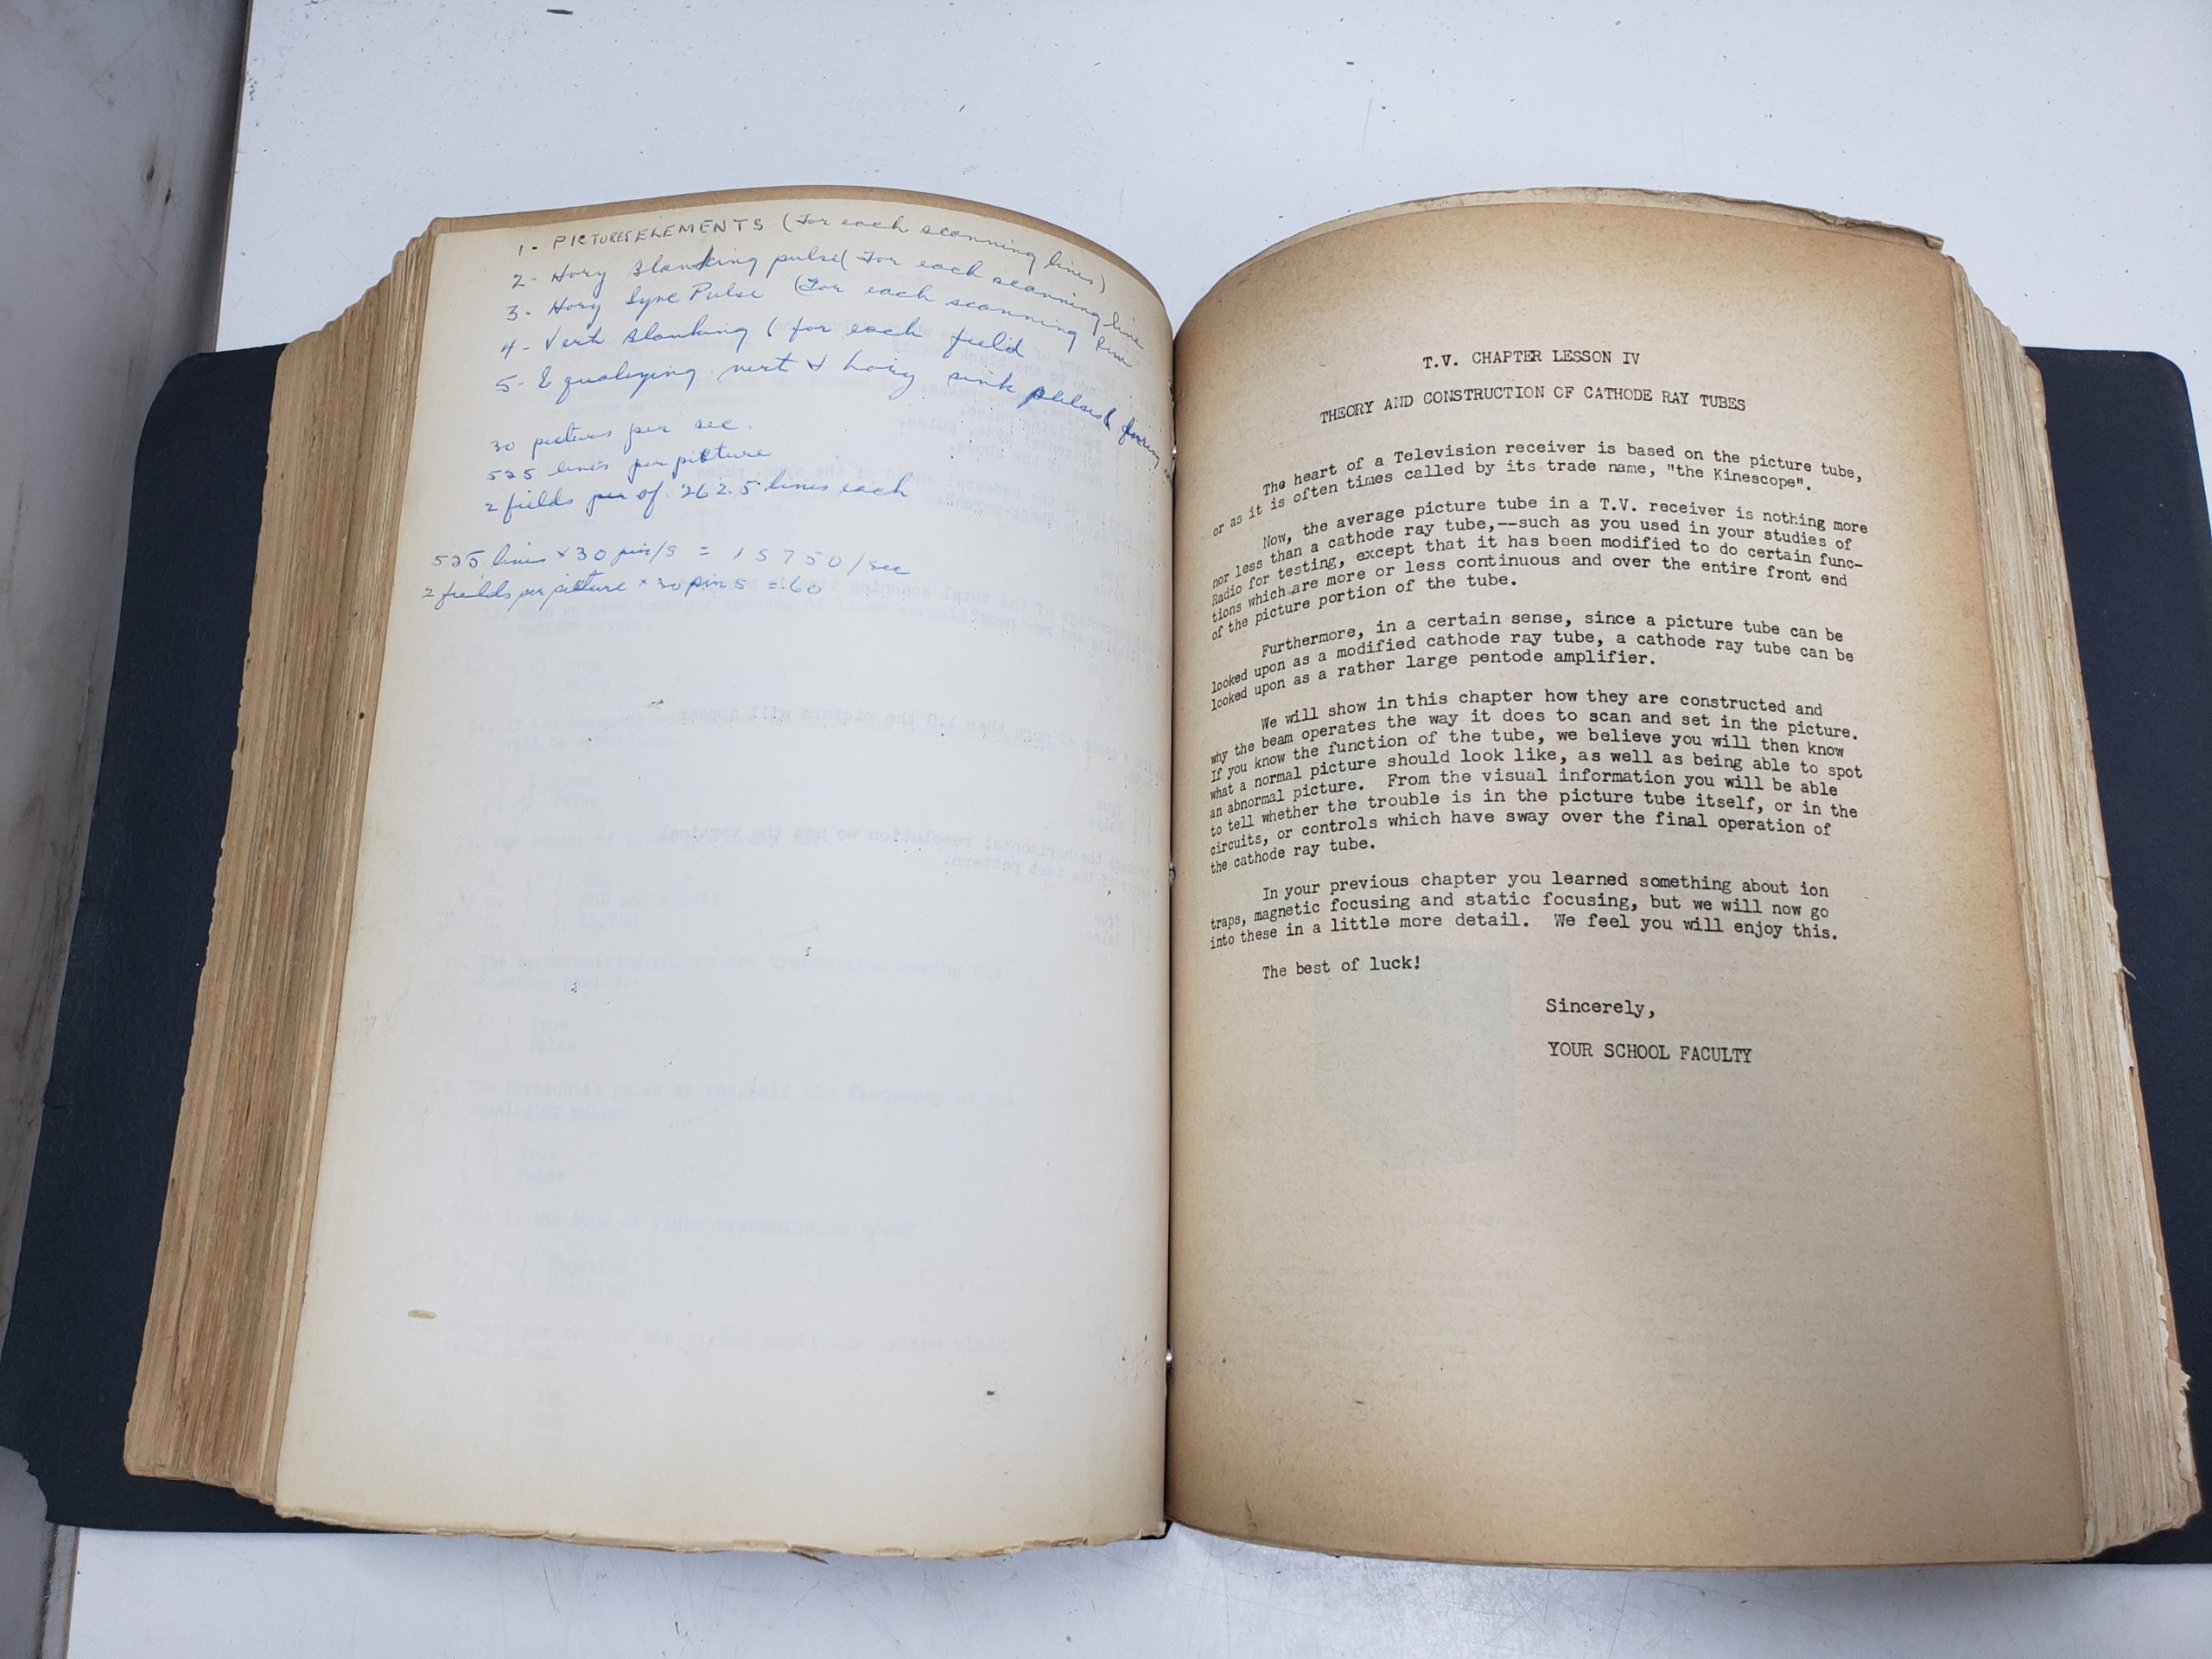 1- PICTURES ELEMENTS (For each scanning lines)
2- Horz Blanking pulse (For each scanning line
3- Horz Sync Pulse (For each scanning line
4- Vert Blanking ( for each field
5- Equalizing vert & horz sink pulses (
30 pictures per sec.
525 lines per picture
2 fields per of 262.5 lines each
525 lines × 30 /s = 15750/sec
2 fields per picture × 30 = 60
T.V. CHAPTER LESSON IV
THEORY AND CONSTRUCTION OF CATHODE RAY TUBES
The heart of a Television receiver is based on the picture tube,
or as it is often times called by its trade name, "the Kinescope".
Now, the average picture tube in a T.V. receiver is nothing more
nor less than a cathode ray tube,--such as you used in your studies of
Radio for testing, except that it has been modified to do certain func-
tions which are more or less continuous and over the entire front end
of the picture portion of the tube.
Furthermore, in a certain sense, since a picture tube can be
looked upon as a modified cathode ray tube, a cathode ray tube can be
looked upon as a rather large pentode amplifier.
We will show in this chapter how they are constructed and
why the beam operates the way it does to scan and set in the picture.
If you know the function of the tube, we believe you will then know
what a normal picture should look like, as well as being able to spot
an abnormal picture. From the visual information you will be able
to tell whether the trouble is in the picture tube itself, or in the
circuits, or controls which have sway over the final operation of
the cathode ray tube.
In your previous chapter you learned something about ion
traps, magnetic focusing and static focusing, but we will now go
into these in a little more detail. We feel you will enjoy this.
The best of luck!
Sincerely,
YOUR SCHOOL FACULTY